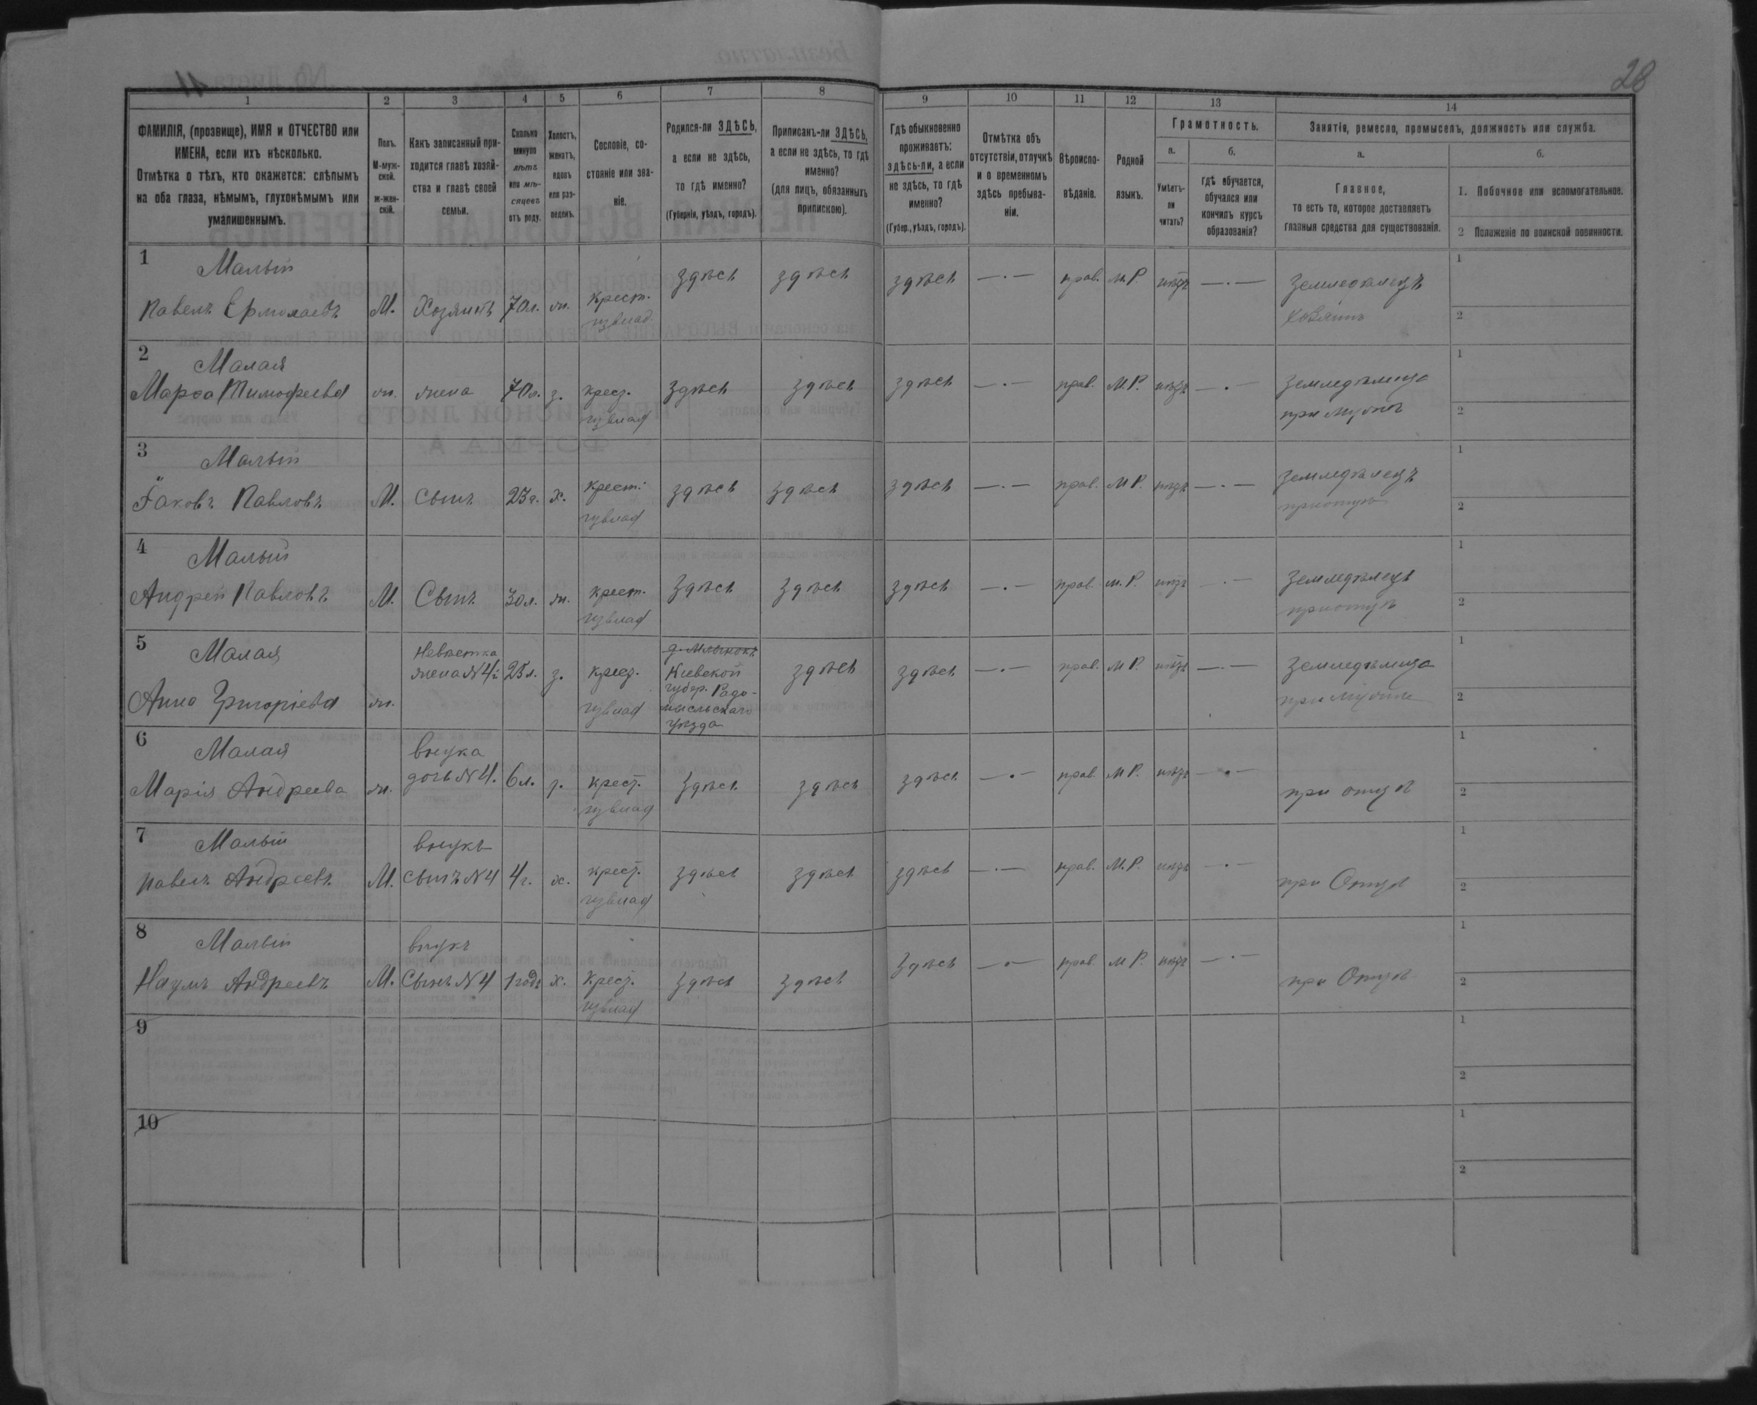 28
1 2 3 4 5 6 7 8 9 10 11 12 13 14
ФАМИЛІЯ, (прозвище), ИМЯ и ОТЧЕСТВО или
ИМЕНА, если ихъ нѣсколько.
Отмѣтка о тѣхъ, кто окажется: слѣпымъ
на оба глаза, нѣмымъ, глухонѣмымъ или
умалишеннымъ.
Полъ.
М-муж-
ской.
ж-жен-
скій.
Какъ записанный при-
ходится главѣ хозяй-
ства и главѣ своей
семьи.
Сколько
минуло
лѣтъ
или мѣ-
сяцевъ
отъ роду.
Холостъ,
женатъ,
вдовъ
или раз-
веденъ.
Сословіе, со-
стояніе или зва-
ніе.
Родился-ли ЗДѢСЬ,
а если не здѣсь,
то гдѣ именно?
(Губернія, уѣздъ, городъ).
Приписанъ-ли ЗДѢСЬ,
а если не здѣсь, то гдѣ
именно?
(для лицъ, обязанныхъ
припискою).
Гдѣ обыкновенно
проживаетъ:
здѣсь-ли, а если
не здѣсь, то гдѣ
именно?
(Губер., уѣздъ, городъ).
Отмѣтка объ
отсутствіи, отлучкѣ
и о временномъ
здѣсь пребыва-
ніи.
Вѣроиспо-
вѣданіе.
Родной
языкъ.
Грамотность.
а.
Умѣетъ-
ли
читать?
б.
гдѣ обучается,
обучался или
кончилъ курсъ
образованія?
Занятія, ремесло, промыселъ, должность или служба.
а.
Главное,
то есть то, которое доставляетъ
главныя средства для существованія.
б.
1. Побочное или вспомогательное.
2 Положеніе по воинской повинности.
1 Малый здѣсь здѣсь здѣсь —·— прав. М.Р. —·— земледѣлецъ 1
Павелъ Ермолаевъ М. Хозяинъ 70л. ж. крест. хозяинъ 2
2 Малая 1
Марѳа Тимофеева ж. жена 70л. з. крес. здѣсь здѣсь здѣсь —·— прав. М.Р. —·— земледѣлица
при мужѣ 2
3 Малый 1
Іаковъ Павловъ М. Сынъ 23г. х. крест. здѣсь здѣсь здѣсь —·— прав. М.Р. —·— земледѣлецъ
2
4 Малый 1
Андрей Павловъ М. Сынъ 30л. ж. крест. здѣсь здѣсь здѣсь —·— прав. М.Р. —·— земледѣлецъ
2
5 Малая Невѣстка 1
жена №4й 25л. з. крес. Кіевской здѣсь здѣсь —·— прав. М.Р. —·— земледѣлица
Анна Григоріева ж. губр. Радо-
мысльскаго при мужѣ 2
уѣзда
6 Малая внука 1
Марія Андреева ж. дочь №4. 6л. крес. здѣсь здѣсь здѣсь —·— прав. М.Р. —·— при отцѣ 2
7 Малый внукъ 1
Павелъ Андреевъ М. сынъ №4 4г. х. крес. здѣсь здѣсь здѣсь —·— прав. М.Р. —·— при Отцѣ 2
8 Малый внукъ 1
Наумъ Андреевъ М. Сынъ №4 1годъ х. крес. здѣсь здѣсь здѣсь —·— прав. М.Р. —·— при Отцѣ 2
9 1
2
10 1
2